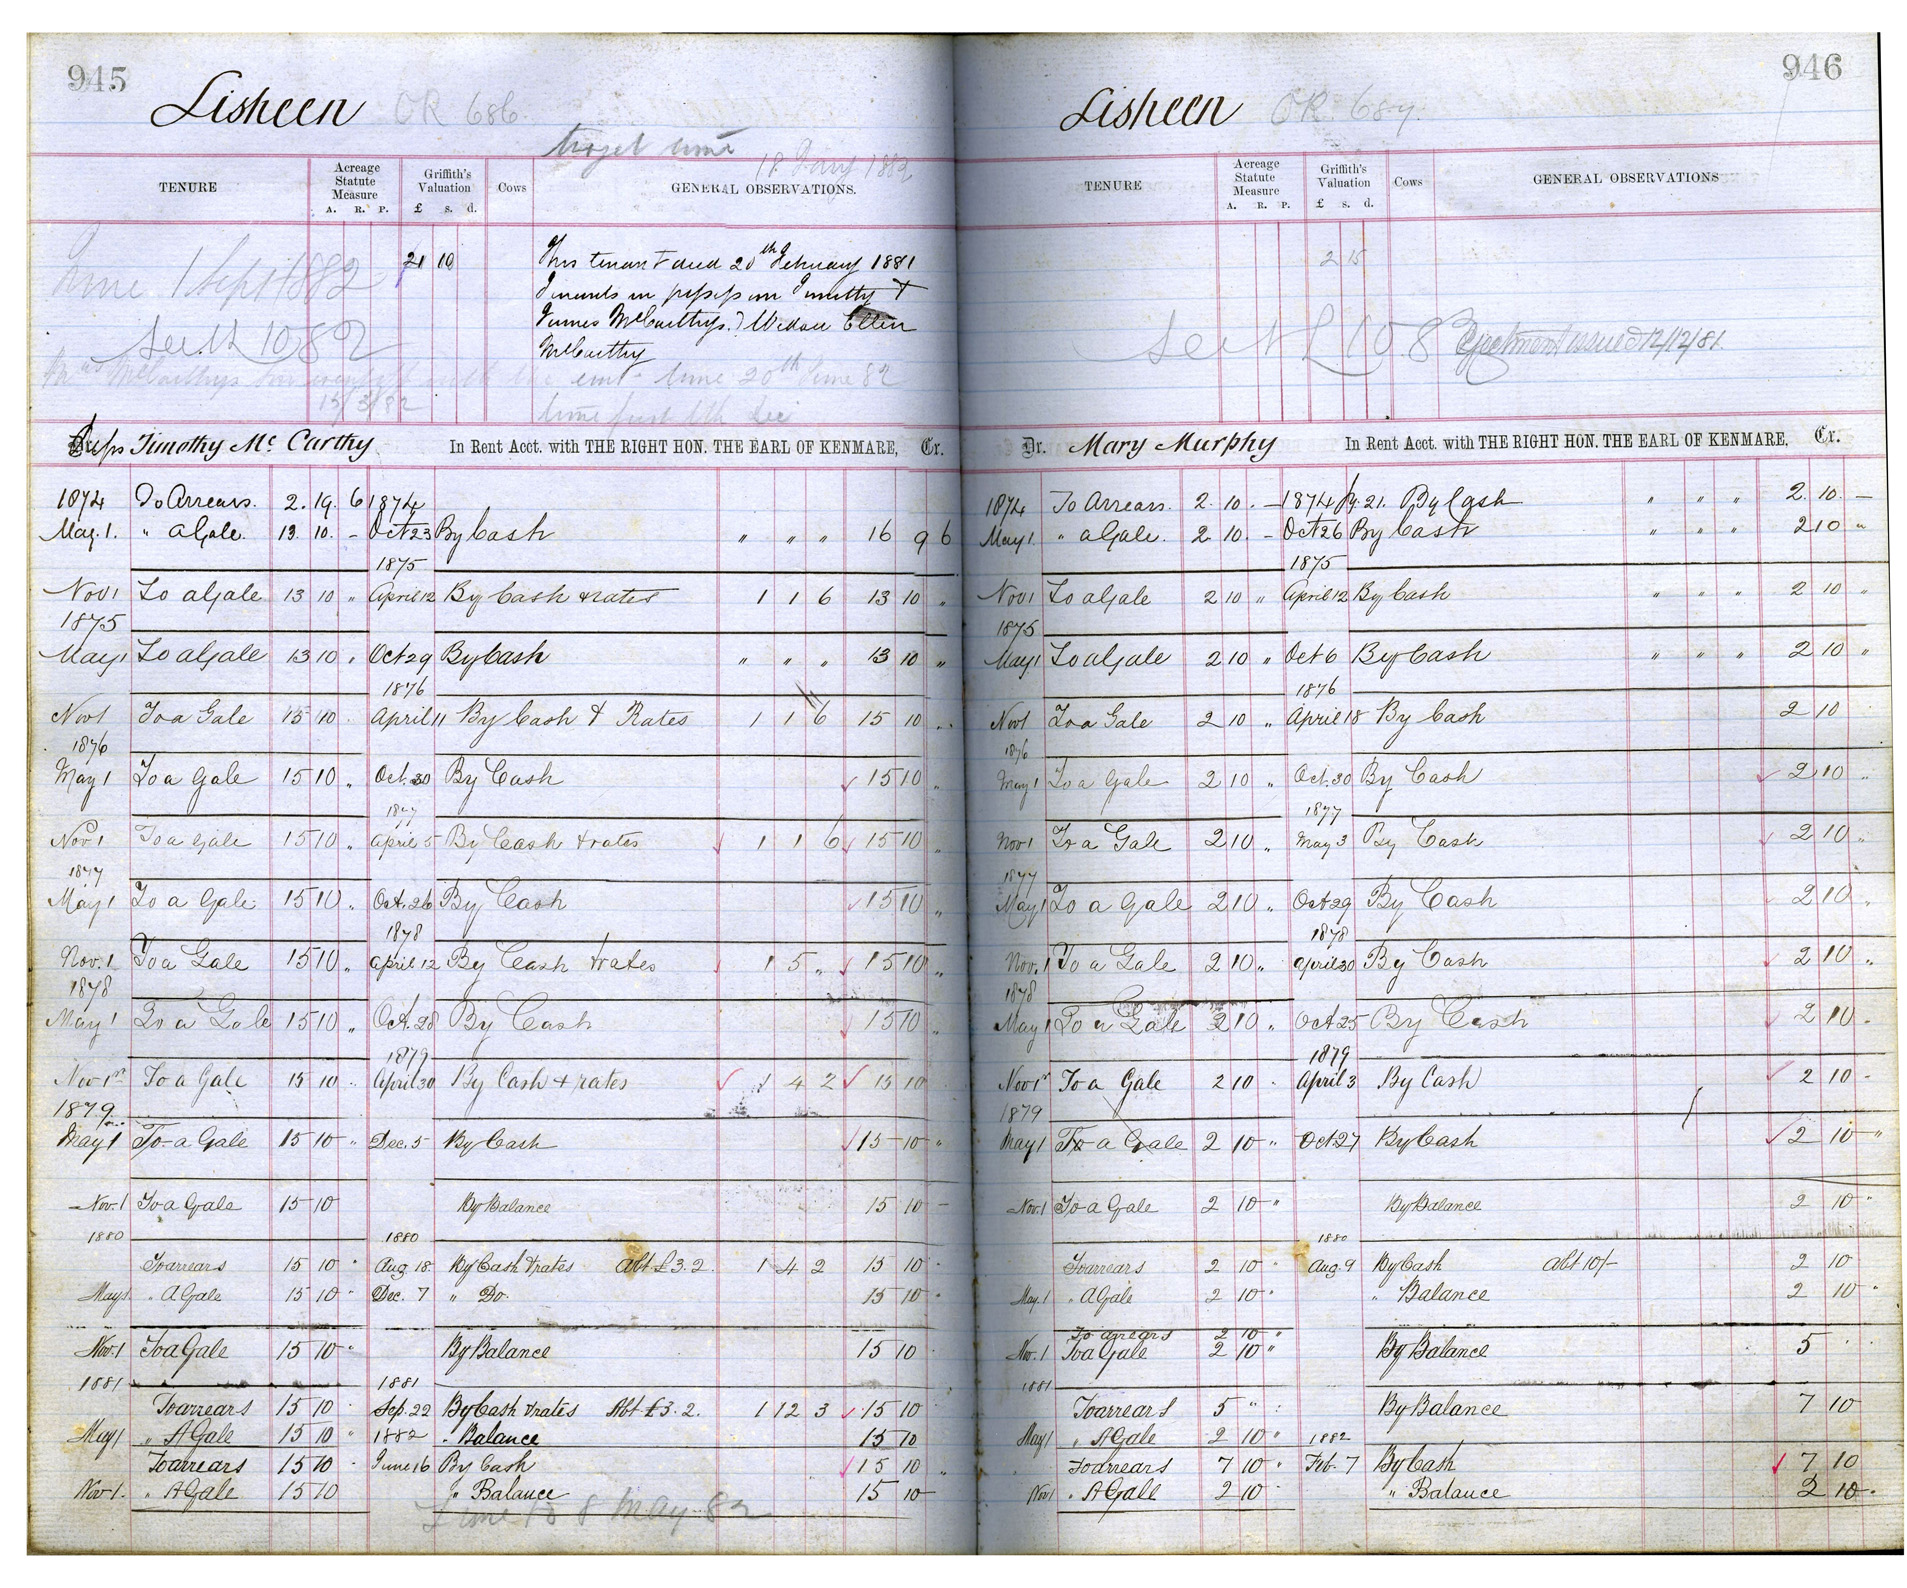 945
Lisheen OR 686.
18 Jany 1882
TENURE Acreage Statute Measure A. R. P. Griffith's Valuation £ s. d. Cows GENERAL OBSERVATIONS.
21 10
time 1 Sept 1882
This tenant died 20th February 1881
Tenants in possession Timothy &
James McCarthys. Widow Ellen
McCarthy
time 20th June 82
13/3/82
Reps Timothy Mc Carthy In Rent Acct. with THE RIGHT HON. THE EARL OF KENMARE, Cr.
1874 To Arrears. 2. 19. 6 1874
May. 1. " a Gale. 13. 10. - Oct 23 By Cash " " " 16 9 6
1875
Nov 1 To a Gale 13 10 " April 12 By Cash & rates 1 1 6 13 10 "
1875
May 1 To a Gale 13 10 " Oct 29 By Cash " " " 13 10 "
1876
Nov 1 To a Gale 15 10 . April 11 By Cash & Rates 1 1 6 15 10 ..
1876
May 1 To a Gale 15 10 " Oct. 30 By Cash 15 10 "
1877
Nov 1 To a Gale 15 10 " April 5 By Cash & rates 1 1 6 15 10 "
1877
May 1 To a Gale 15 10 " Oct. 26 By Cash 15 10 "
1878
Nov. 1 To a Gale 15 10 " April 12 By Cash & rates 1 5 " 15 10 "
1878
May 1 To a Gale 15 10 " Oct. 28 By Cash 15 10 "
1879
Nov 1st To a Gale 15 10 .. April 30 By Cash & rates 1 4 2 15 10
1879
May 1 To a Gale 15 10 " Dec. 5 By Cash 15 10 "
Nov. 1 To a Gale 15 10 By Balance 15 10 -
1880 1880
To arrears 15 10 " Aug. 18 By Cash & rates Abt £3. 2. 1 4 2 15 10 .
May 1 " A Gale 15 10 " Dec. 7 " Do. 15 10 "
Nov. 1 To a Gale 15 10 " By Balance 15 10 .
1881 1881
To arrears 15 10 . Sep. 22 By Cash & rates Abt £3. 2. 1 12 3 15 10
May 1 " A Gale 15 10 " 1882 " Balance 15 10
To arrears 15 10 . June 16 By Cash 15 10 "
Nov 1. " A Gale 15 10 " Balance 15 10
Time to 8 May 82
946
Lisheen OR. 687.
TENURE Acreage Statute Measure A. R. P. Griffith's Valuation £ s. d. Cows GENERAL OBSERVATIONS
2 15
Ejectment issued 12/12/81
Dr. Mary Murphy In Rent Acct. with THE RIGHT HON. THE EARL OF KENMARE, Cr.
1874 To Arrears. 2. 10. - 1874 21. By Cash " " " 2. 10. -
May 1 " a Gale. 2 10. - Oct 26 By Cash " " " 2 10 "
1875
Nov 1 To a Gale 2 10 " April 12 By Cash " " " 2 10 "
1875
May 1 To a Gale 2 10 " Oct 6 By Cash " " " 2 10 "
1876
Nov 1 To a Gale 2 10 " April 18 By Cash 2 10
1876
May 1 To a Gale 2 10 " Oct. 30 By Cash 2 10 "
1877
Nov 1 To a Gale 2 10 " May 3 By Cash 2 10 "
1877
May 1 To a Gale 2 10 " Oct 29 By Cash 2 10 "
1878
Nov. 1 To a Gale 2 10 " April 30 By Cash 2 10 "
1878
May 1 To a Gale 2 10 " Oct 25 By Cash 2 10 .
1879
Nov 1st To a Gale 2 10 . April 3 By Cash 2 10 -
1879
May 1 To a Gale 2 10 " Oct 27 By Cash 2 10 "
Nov. 1 To a Gale 2 10 " By Balance 2 10 "
1880
To arrears 2 10 " Aug. 9 By Cash Abt 10/- 2 10
May. 1 " A Gale 2 10 " " Balance 2 10 "
To arrears 2 10 "
Nov. 1 To a Gale 2 10 " By Balance 5 . .
1881
To arrears 5 " : By Balance 7 10
May 1 " A Gale 2 10 " 1882
To arrears 7 10 " Feb. 7 By Cash 7 10
Nov 1 " A Gale 2 10 " Balance 2 10.